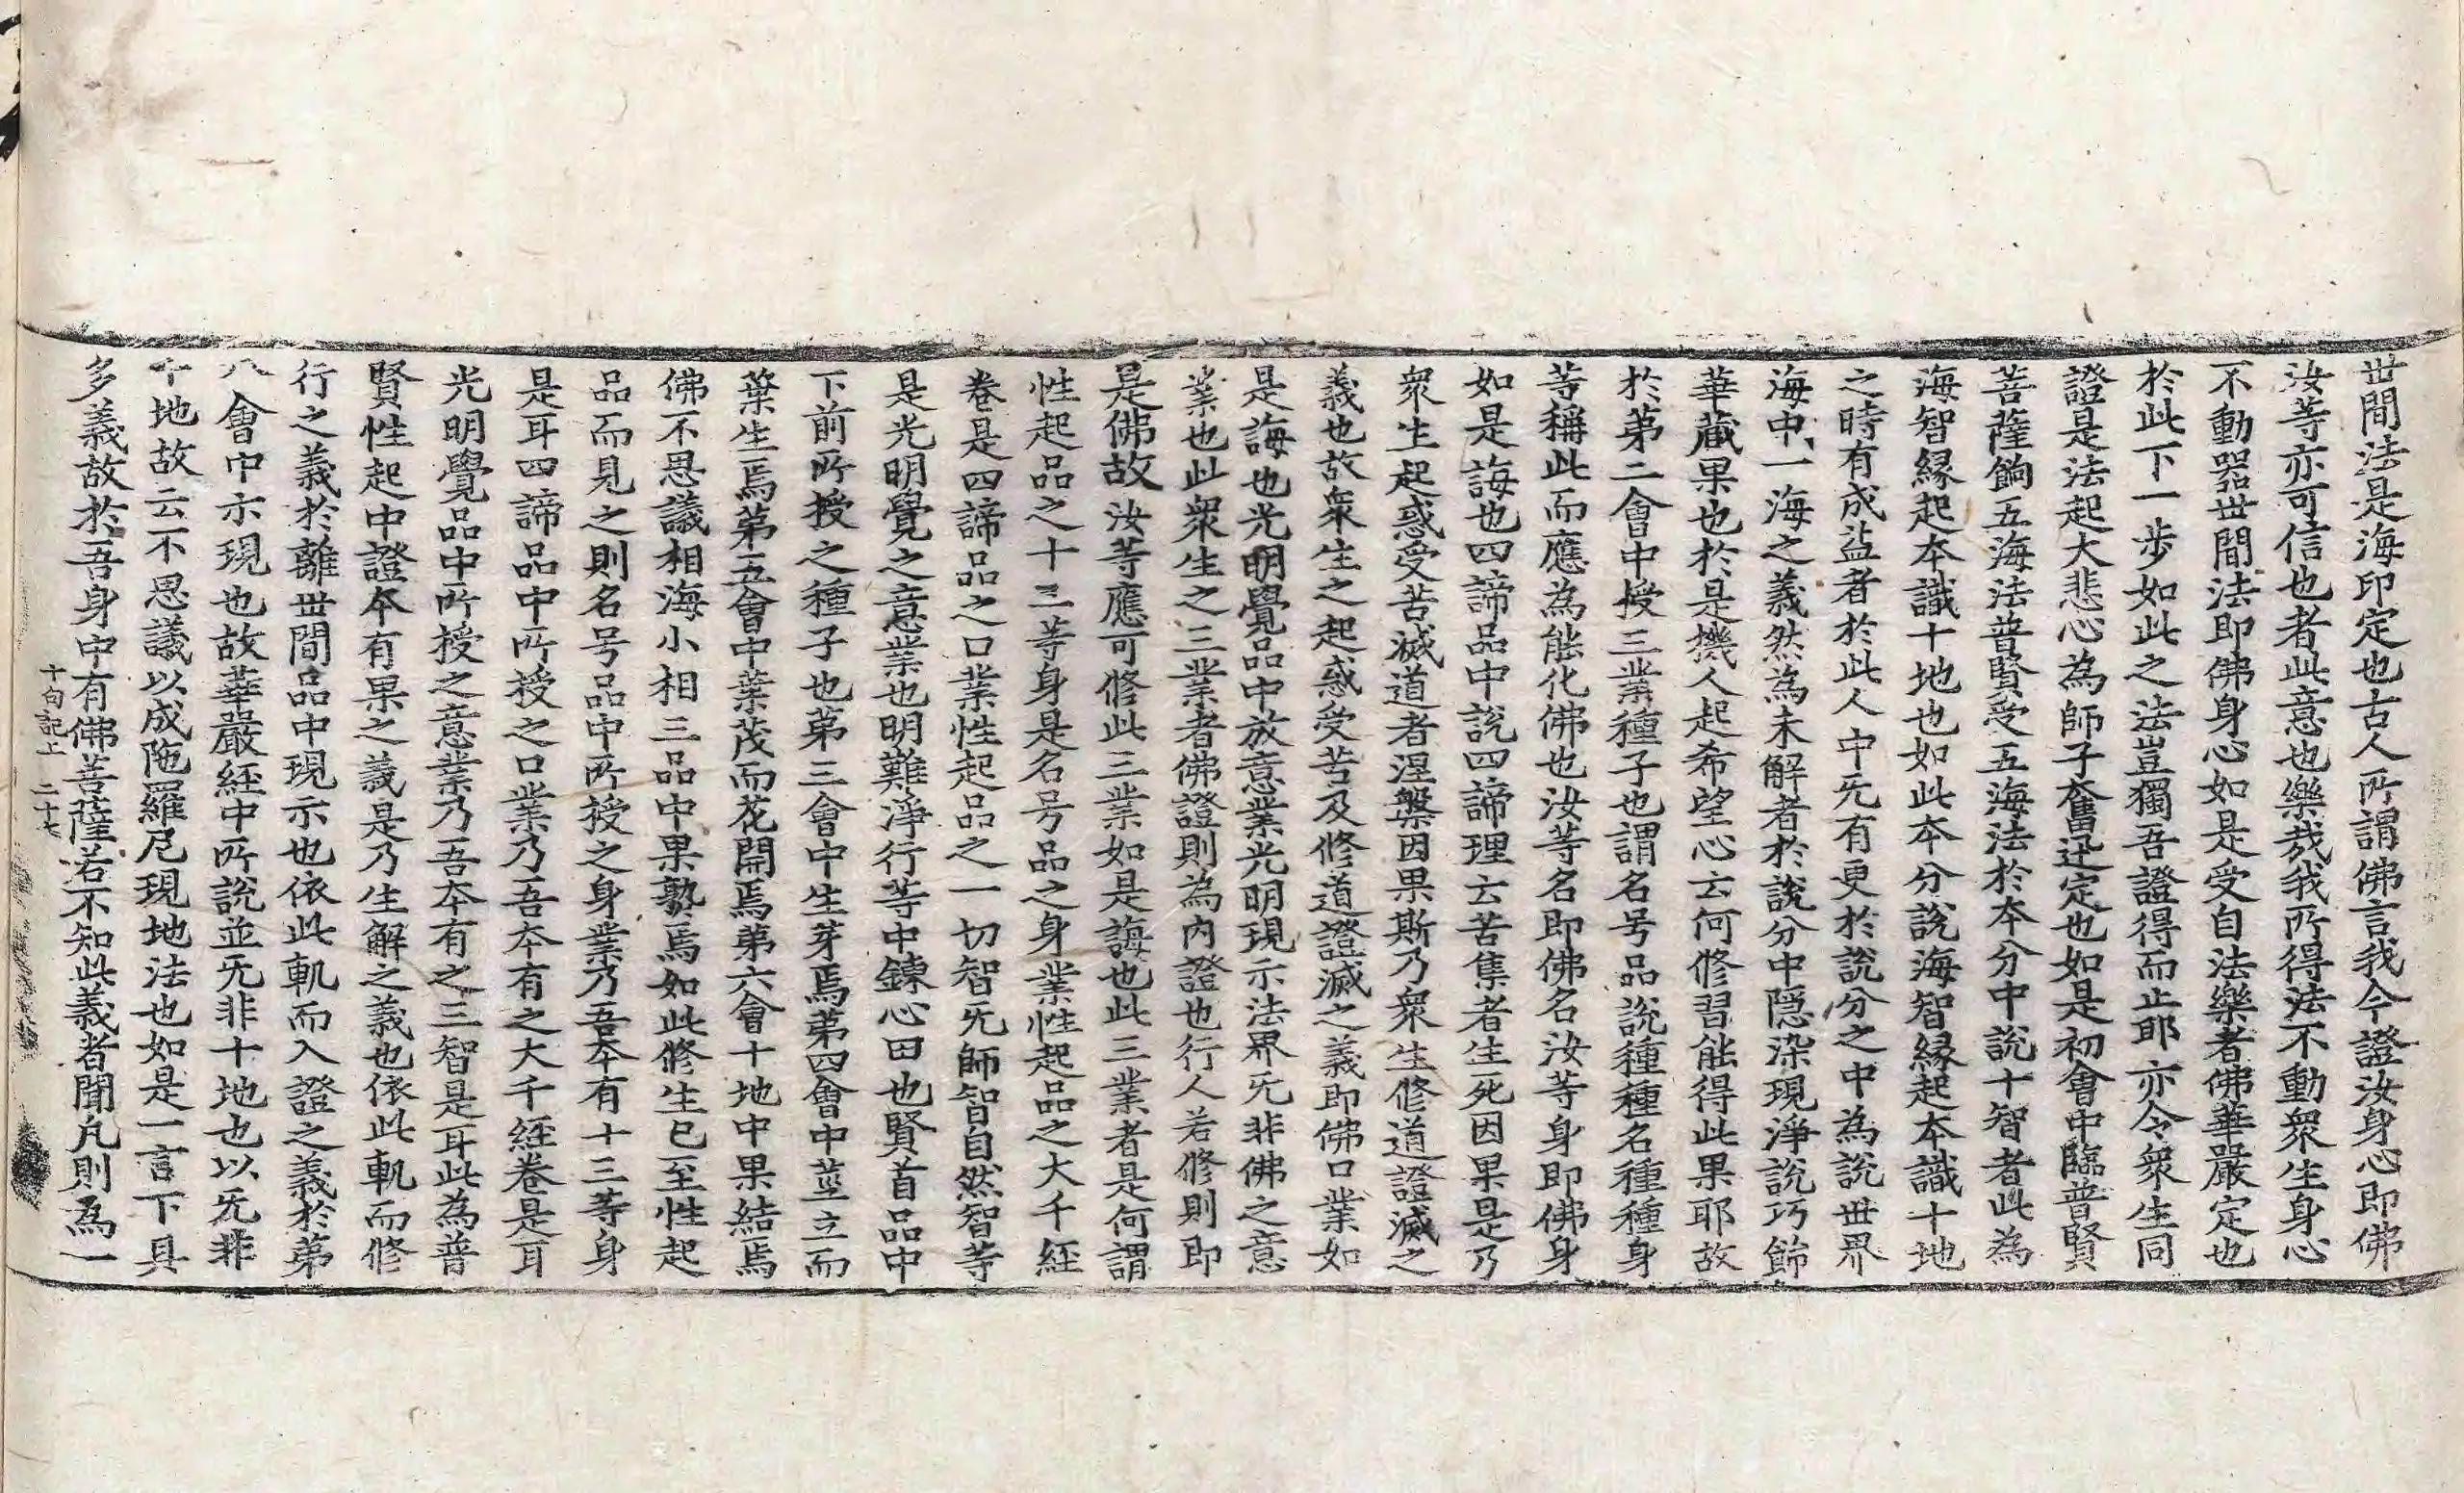 世間法是海印定也古人所謂佛言我今證汝身心即佛
汝等亦可信也者此意也樂哉我所得法不動衆生身心
不動器世間法即佛身心如是受自法樂者佛華嚴定也
於此下一步如此之法豈獨吾證得而止耶亦令衆生同
證是法起大悲心為師子奮迅定也如是初會中臨普賢
菩薩餉五海法普賢受五海法於本分中說十智者此為
海智緣起本識十地也如此本分說海智緣起本識十地
之時有成益者於此人中旡有更於說分之中為說世界
海中一海之義然為未解者於說分中隠染現淨說巧餙
華藏果也於是機人起希望心云何修習能得此果耶故
於第二會中授三業種子也謂名号品說種種名種種身
等稱此而應為能化佛也汝等名即佛名汝等身即佛身
如是誨也四諦品中說四諦理云苦集者生死因果是乃
衆生起惑受苦滅道者涅槃因果斯乃衆生修道證滅之
義也故衆生之起惑受苦及修道證滅之義即佛口業如
是誨也光明覺品中放意業光明現示法界旡非佛之意
業也此衆生之三業者佛證則為內證也行人若修則即
是佛故汝等應可修此三業如是誨也此三業者是何謂
性起品之十三等身是名号品之身業性起品之大千經
卷是四諦品之口業性起品之一切智旡師智自然智等
是光明覺之意業也明難淨行等中鍊心田也賢首品中
下前所授之種子也第三會中生芽焉第四會中莖立而
葉生焉第五會中葉茂而花開焉第六會十地中果結焉
佛不思議相海小相三品中果熟焉如此修生已至性起
品而見之則名号品中所授之身業乃吾本有十三等身
是耳四諦品中所授之口業乃吾本有之大千經卷是耳
光明覺品中所授之意業乃吾本有之三智是耳此為普
賢性起中證本有果之義是乃生解之義也依此軌而修
行之義於離世間品中現示也依此軌而入證之義於第
八會中示現也故華嚴經中所說並旡非十地也以旡非
十地故云不思議以成陁羅尼現地法也如是一言下具
多義故於吾身中有佛菩薩若不知此義者聞凡則為一
十句記上 二十七